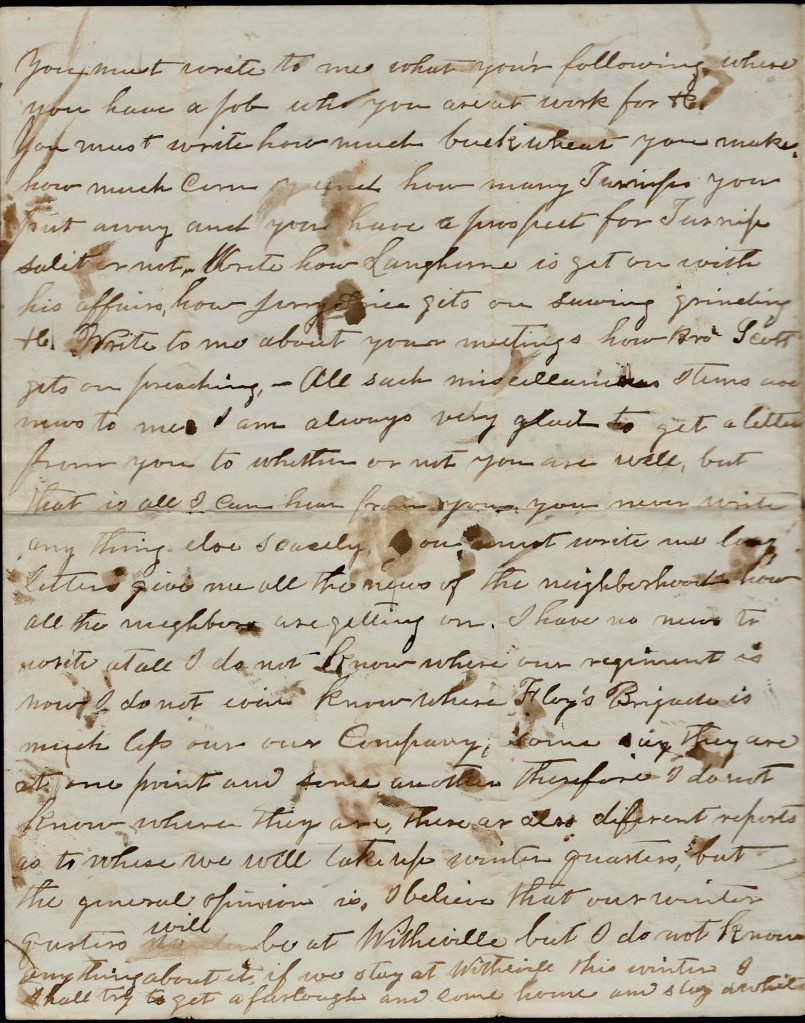 You must write to me what your following where
you have a job who you are at work for &c.
You must write how much buckwheat you make,
how much Corn how many Turnips you
put away and you have a prospect for Turnip
salit or not, Write how Langhorne is get on with
his affairs, how Jerry Price gits on sawing grinding
&c. Write to me about your meetings how Bro Scott
gets on preaching, - All such miscellanious items are
news to me. I am always very glad to get a letter
from you to whether or not you are well, but
that is all I can hear from you you never write
any thing else scarcely, you must write me long
letters give me all the news of the neighborhood how
all the neighbors are getting on. I have no news to
write at all I do not know where our regiment is
now I do not know where Floy's Brigade is
much less our our Company, some say they are
at one point and some another therefore I do not
know where they are, there ar also different reports
as to where we will take up winter quarters, but
the general opinion is, I believe that our winter
qusters will be at Witheville but I do not know
anything about it, if we stay at Witheville this winter I
shall try to get a furlough and come home and stay awhile